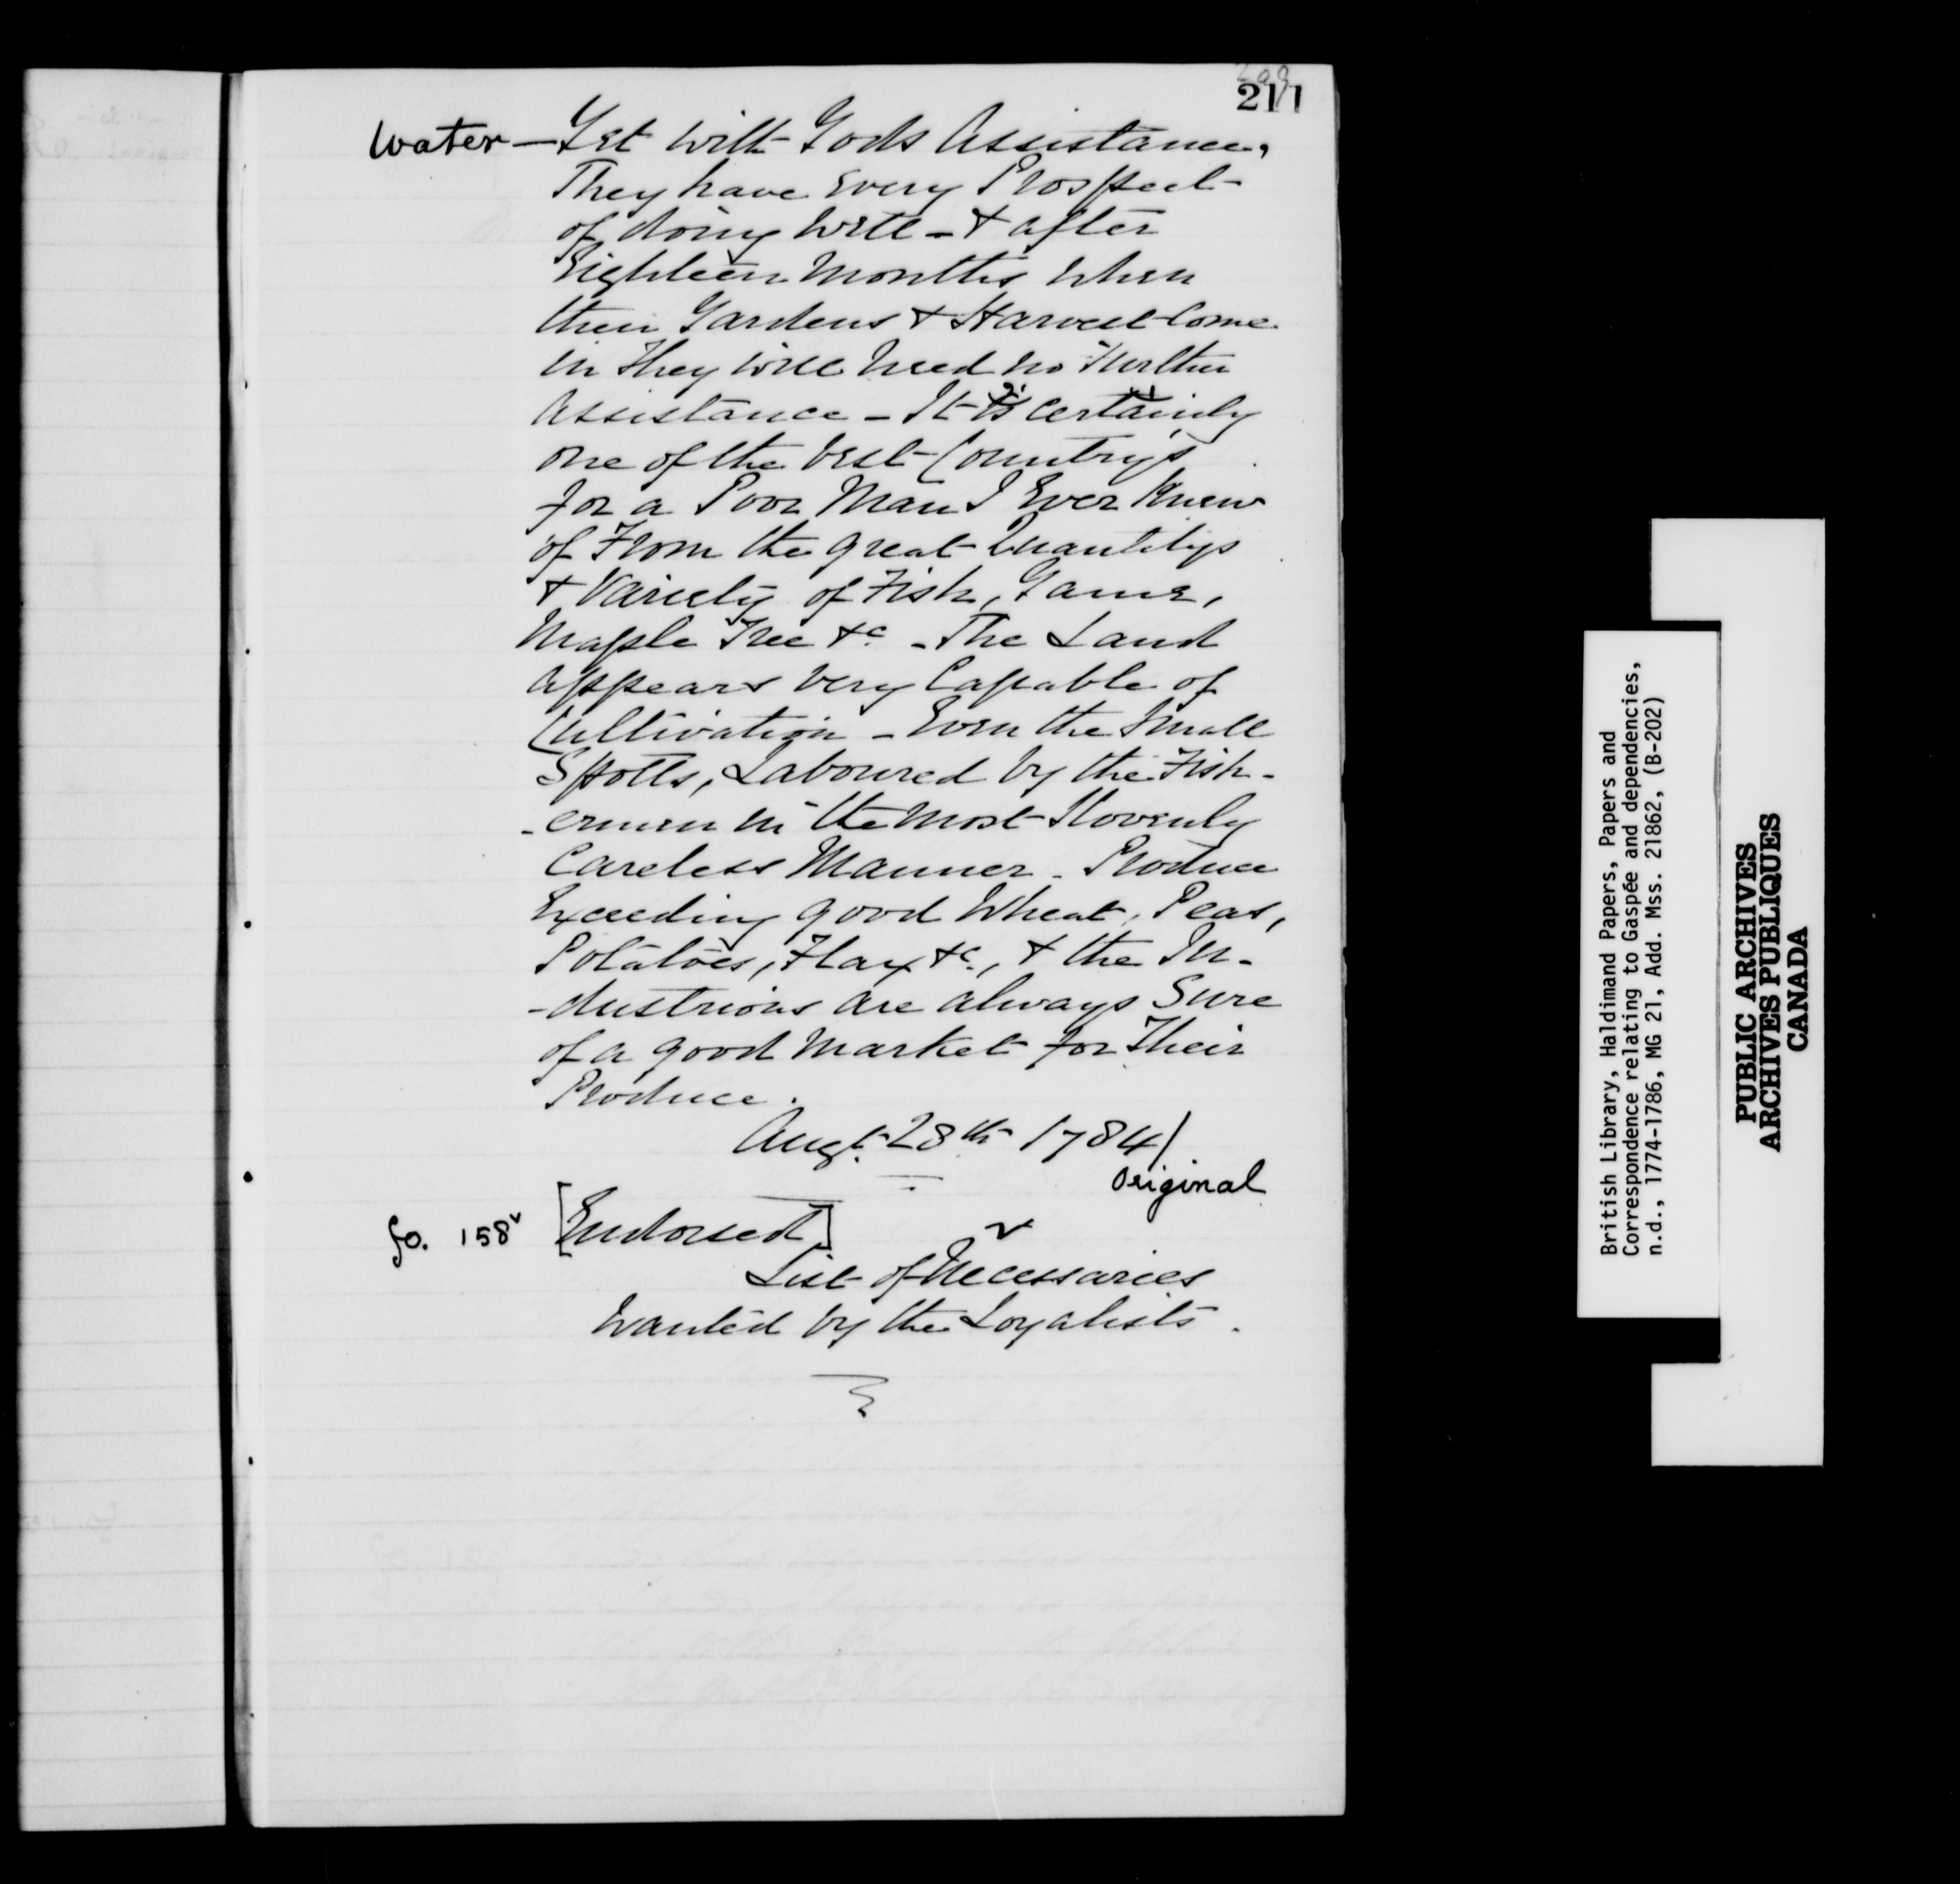 209
211
water — Yet with Gods Assistance,
They have Every Prospect
of doing well - & after
Eighteen Months when
their Gardens & Harvest Come
in They will need no Further
Assistance - It is certainly
one of the best Country's
for a Poor Man I Ever Knew
of From the great Quantitys
& Variety of Fish, Game,
Maple Tree &c - The Land
appears very Capable of
Cultivation - Even the Small
Spotts, Laboured by the Fish-
-ermen in the most Slovenly
Careless Manner - Produce
Exceeding good Wheat, Peas,
Potatoes, Flax &c., & the In-
-dustrious are always Sure
of a good Market for Their
Produce.
Augt. 28th 1784/
Original
fo. 158v [Endorsed]
List of Necessaries
Wanted by the Loyalists.
British Library, Haldimand Papers, Papers and
Correspondence relating to Gaspée and dependencies,
n.d., 1774-1786, MG 21, Add. Mss. 21862, (B-202)
PUBLIC ARCHIVES
ARCHIVES PUBLIQUES
CANADA